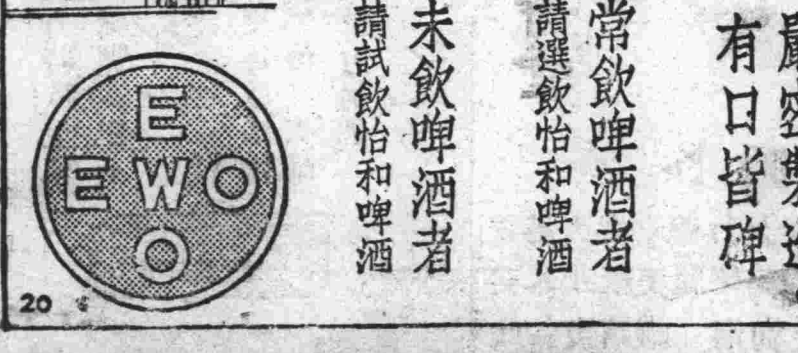 有口皆碑
常飲啤酒者
請選飲怡和啤酒
未飲啤酒者
請試飲怡和啤酒
E
EWO
O
20